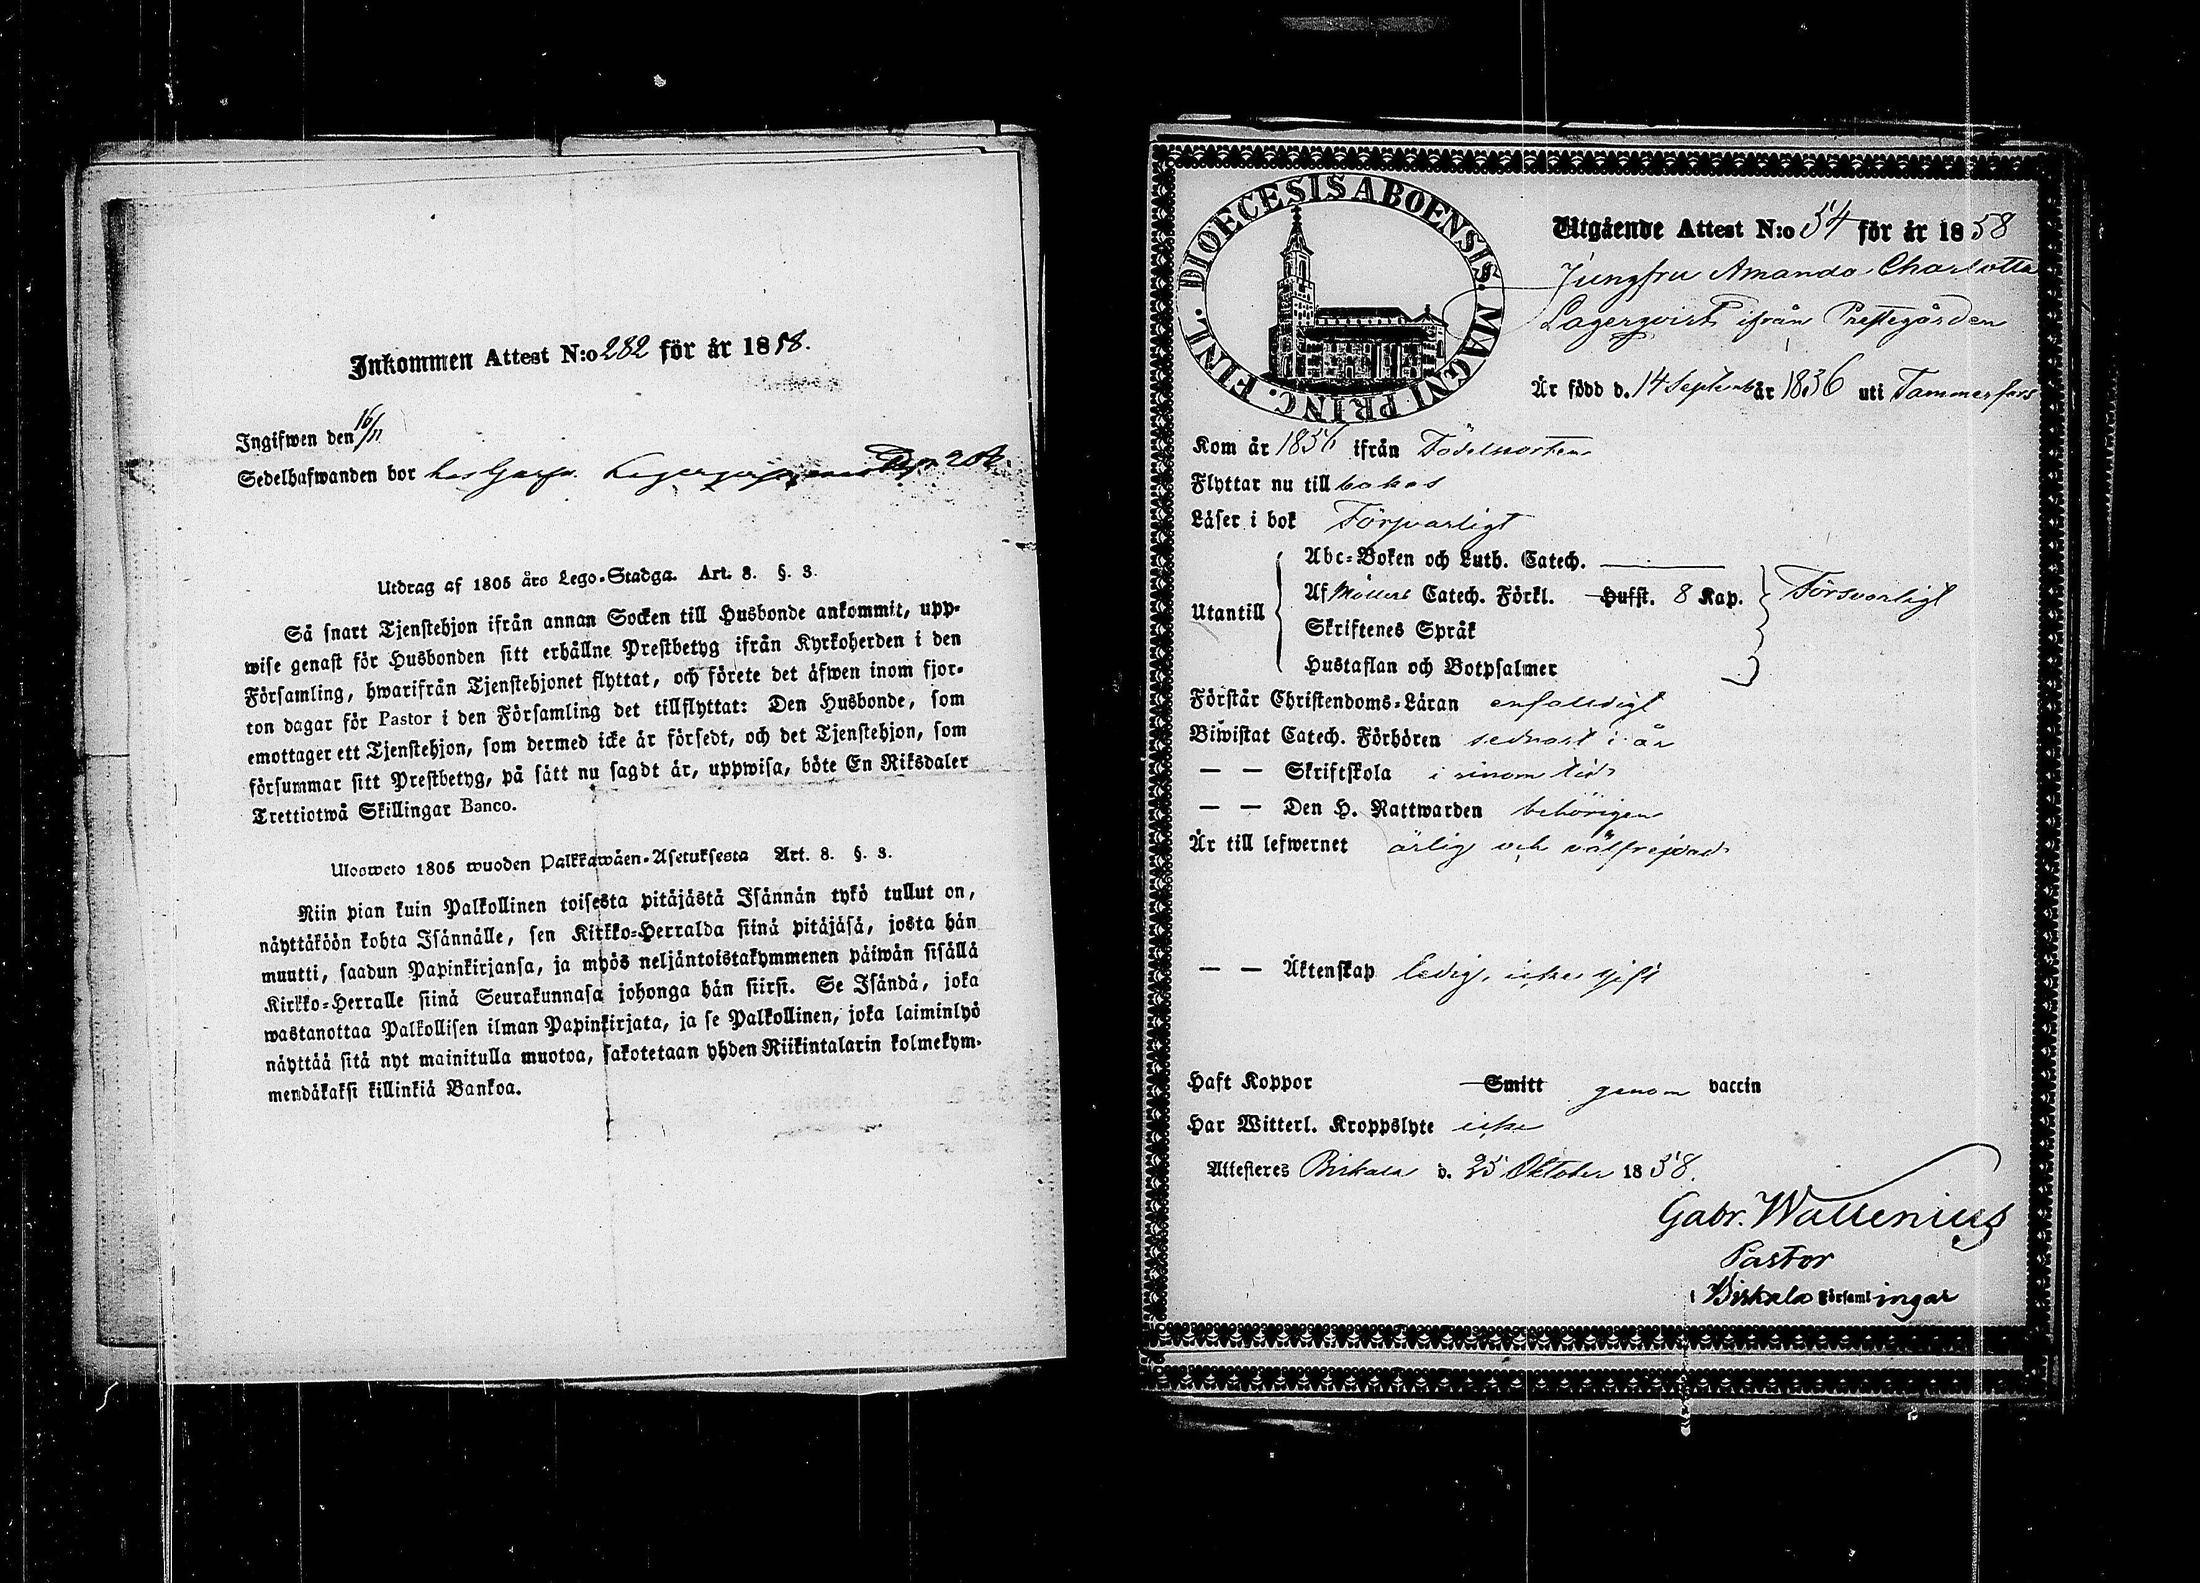 Inkommen Attest N:o 282 för år 1858.
Ingifwen den 16/11
Sedelhafwanden bor hos
Utdrag af 1805 års Lego-Stadga. Art. 8. §. 3.
Så snart Tjenstehjon ifrån annan Socken till Husbonde ankommit, upp-
wise genast för Husbonden sitt erhållne Prestbetyg ifrån Kyrkoherden i den
Församling, hwarifrån Tjenstehjonet flyttat, och förete det äfwen inom fjor-
ton dagar för Pastor i den Församling det tillflyttat: Den Husbonde, som
emottager ett Tjenstehjon, som dermed icke är försedt, och det Tjenstehjon, som
försummar sitt Prestbetyg, på sätt nu sagdt är, uppwisa, böte En Riksdaler
Trettiotwå Skillingar Banco.
Ulosweto 1805 wuoden Palkkawäen-Asetuksesta Art. 8. §. 3.
Niin pian kuin Palkollinen toisesta pitäjästä Isännän tykö tullut on,
näyttäköön kohta Isännälle, sen Kirkko-Herralda siinä pitäjäsä, josta hän
muutti, saadun Papinkirjansa, ja myös neljäntoistakymmenen päiwän sisällä
Kirkko-Herralle siinä Seurakunnasa johonga hän siirsi. Se Isändä, joka
wastanottaa Palkollisen ilman Papinkirjata, ja se Palkollinen, joka laiminlyö
näyttää sitä nyt mainitulla muotoa, sakotetaan yhden Riikintalarin kolmekym-
mendäkaksi killinkiä Bankoa.
DIOECESIS ABOENSIS. MAGNI PRINC. FINL.
Utgående Attest N:o 54 för år 1858
Jungfru Amanda Charlotta
Lagerqvist ifrån Prestegården
Är född d. 14 Septemb år 1836 uti Tammerfors
Kom år 1856 ifrån Födelseorten
Flyttar nu till bakas
Läser i bok Försvarligt
Abc-Boken och Luth. Catech.
Utantill Af Möllers Catech. Förkl. Hufst. 8 Kap. Försvarligt
Skriftenes Språk
Hustaflan och Botpsalmer
Förstår Christendoms-Läran enfaldigt
Biwistat Catech. Förhören sednast i år
— — Skriftskola i sinom tid
— — Den H. Nattwarden behörigen
Är till lefwernet ärlig och välfrejdad
— — Äktenskap ledig, icke gift
Haft Koppor Smitt genom vaccin
Har Witterl. Kroppslyte icke
Attesteres Birkala d. 25 Oktober 1858.
Gabr. Wallenius
Pastor
i Birkala Församlingar